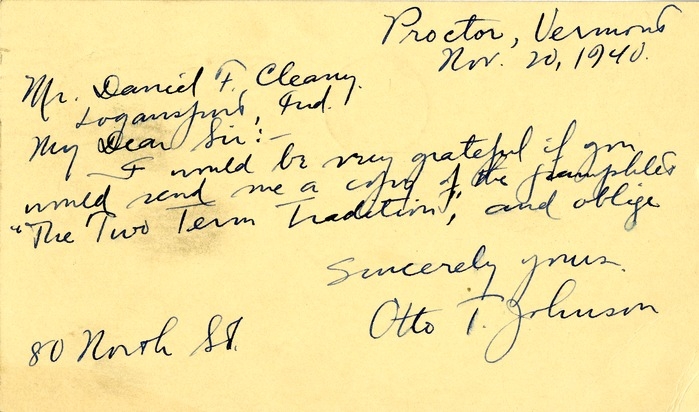 Proctor, Vermont
Nov. 20, 1940.
Mr. Daniel F. Cleary.
Logansport, Ind.
My Dear Sir:-
I would be very grateful if you
would send me a copy of the pamphlet
"The Two Term Tradition", and oblige
Sincerely yours.
Otto T. Johnson
80 North St.